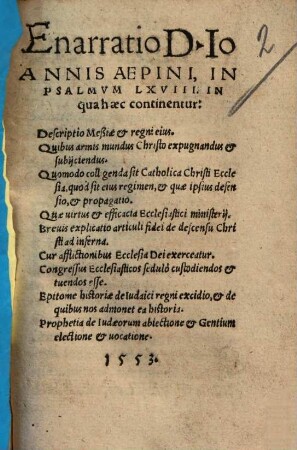 Enarratio D. Io
ANNIS AEPINI, IN
PSALMVM LXVIII. IN
qua hæc continentur:
2
Descriptio Meßiæ & regni eius.
Quibus armis mundus Christo expugnandus &
subijciendus.
Quomodo colligenda sit Catholica Christi Eccle
sia, quod sit eius regimen, & quæ ipsius defen
sio, & propagatio.
Quæ virtus & efficacia Ecclesiastici ministerij.
Breuis explicatio articuli fidei de descensu Chri
sti ad inferna.
Cur afflictionibus Ecclesia Dei exerceatur.
Congressus Ecclesiasticos sedulò custodiendos &
tuendos esse.
Epitome historiæ de Iudaici regni excidio, & de
quibus nos admonet ea historia.
Prophetia de Iudæorum abiectione & Gentium
electione & uocatione.
1553.